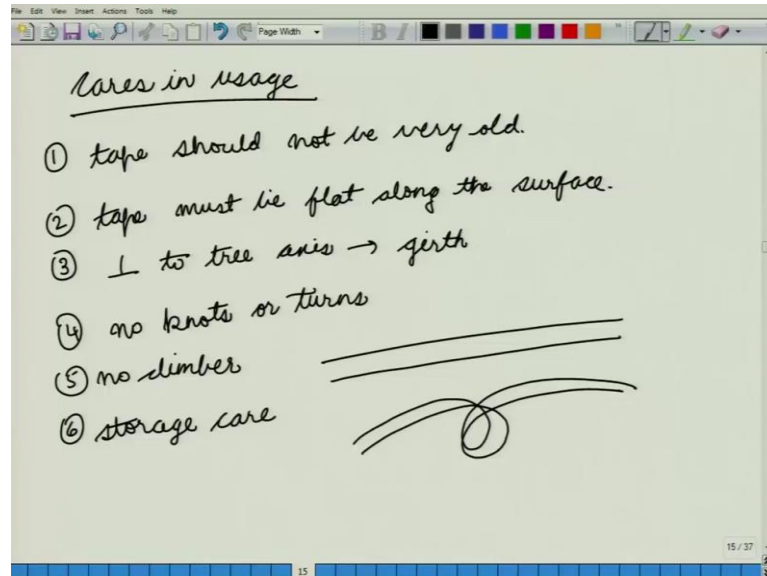 File Edit View Insert Actions Tools Help
Page Width
B I
Cares in usage
① tape should not be very old.
② tape must lie flat along the surface.
③ ⊥ to tree axis → girth
④ no knots or turns
⑤ no climber
⑥ storage care
15 / 37
15